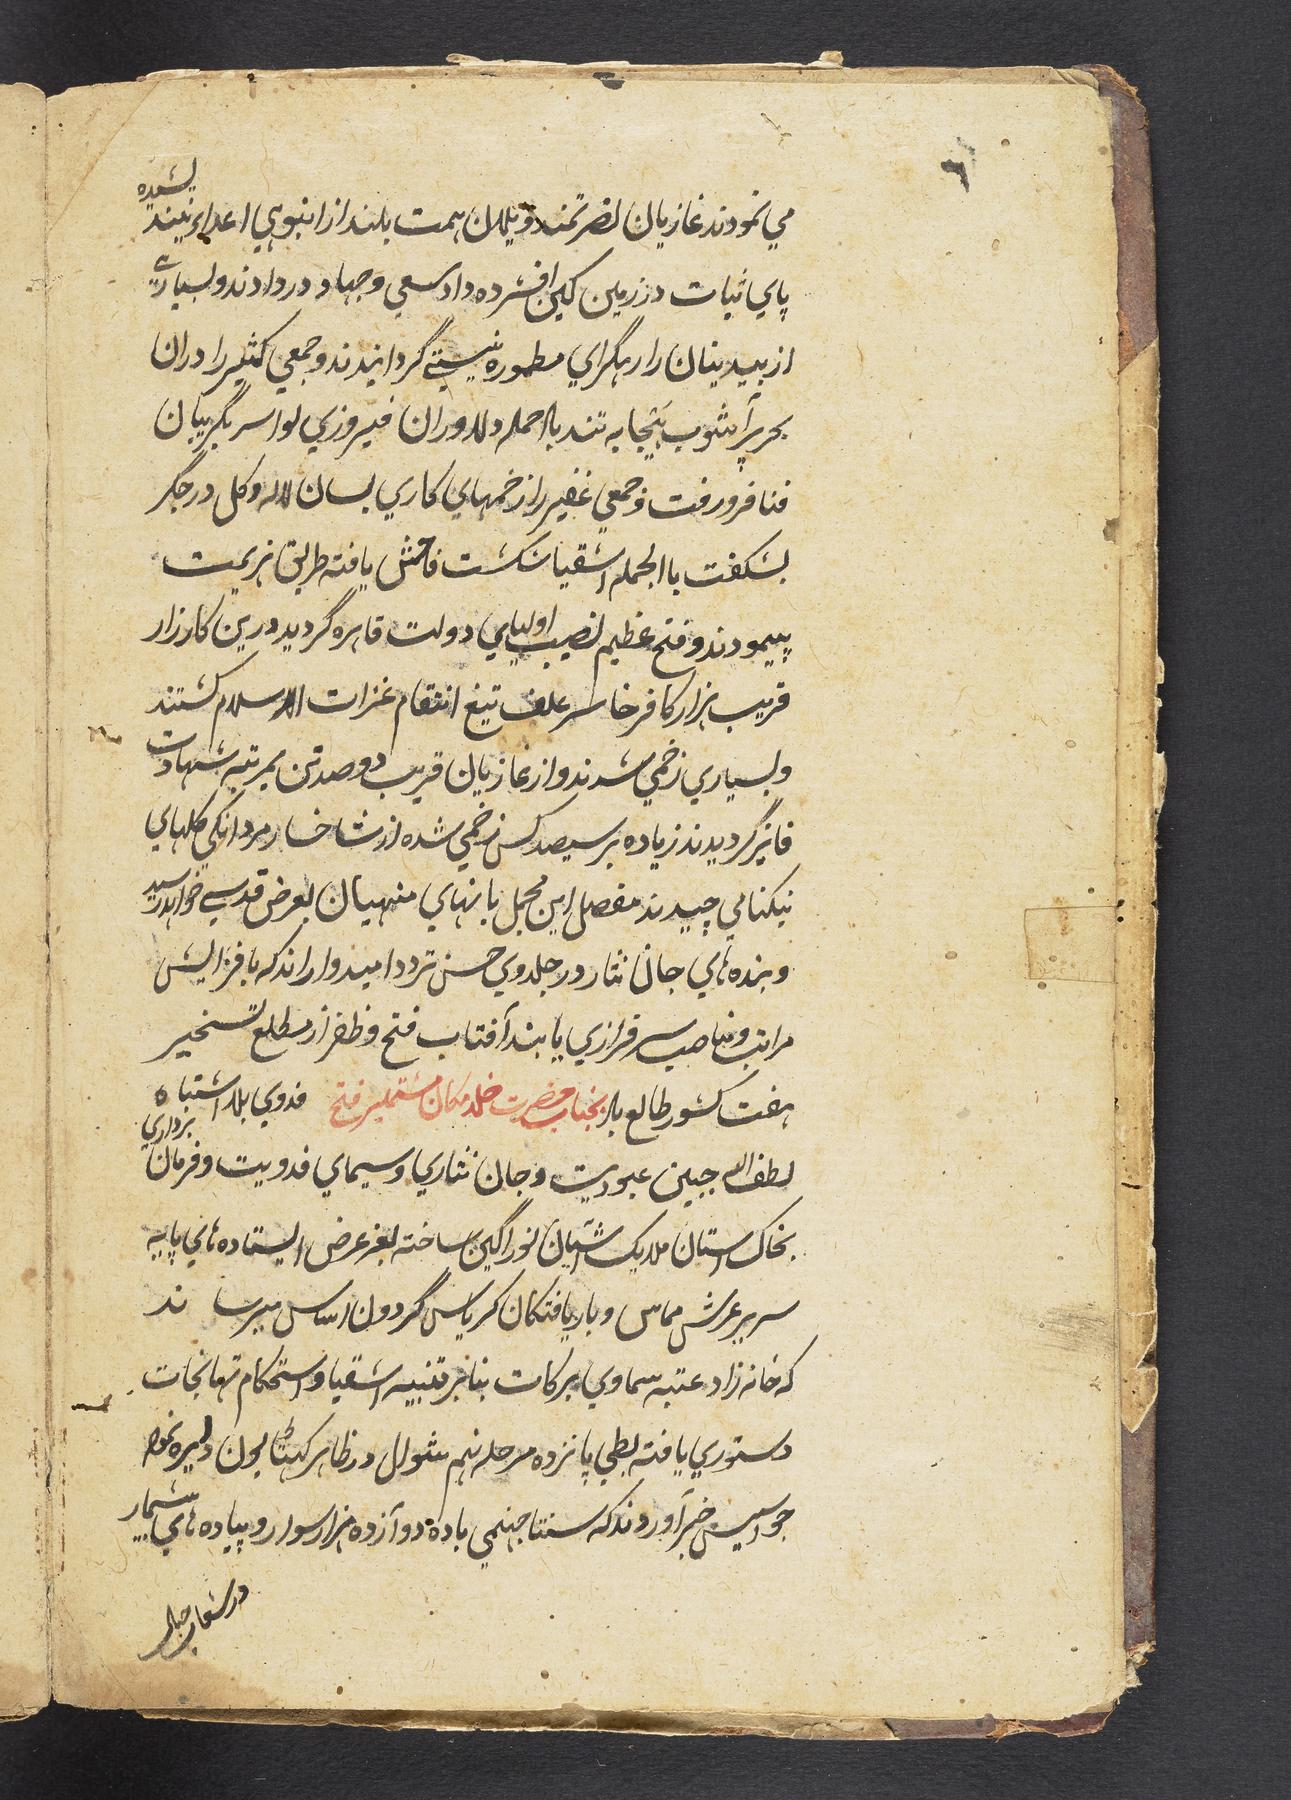 ٦
مي نمودند غازيان نصرتمند ويلان همت بلند از انبوهي اعدا نينديشيده
پاي ثبات در زمين كين افشرده داد سعي وجهاد در دادند وبسياري
از بيدينان را رهگراي مطموره نيستي گردانيدند وجمعي كثير را در ان
بحر پر آشوب تند با حمله دلاوران فيروزي لوا سر بگريبان
فنا فرو رفت وجمعي غفير را زخمهاي كاري بسان لاله وكل در جگر
بشكفت با الجمله اشقيا شكست فاحش يافته طريق هزيمت
پيمودند وفتح عظيم نصيب اولياي دولت قاهره گرديد درين كارزار
قريب هزار كافر خاسر علف تيغ انتقام غزات الاسلام گشتند
وبسياري زخمي شدند واز غازيان قريب دو صد تن بمرتبه شهادت
فايز گرديدند زياده بر سيصد كس زخمي شده از شاخسار مردانكي كلهاي
نيكنامي چيدند مفصل اين مجمل بانهاي منهيان بعرض قدسي خواهد رسيد
وبنده هاي جان نثار در جلدوي حسن تردد اميدوار اند كه بافزايش
مراتب ومناصب سرفرازي يابند آفتاب فتح وظفر از مطلع تسخير
هفت كشور طالع باد بجناب حضرت خلد مكان مشتملبر فتح فدوي بلا اشتباه
لطف الله جبين عبوديت وجان نثاري وسيماي فدويت وفرمان برداري
بخاك استان ملايك اشيان نوراگين ساخته بعز عرض ايستاده هاي پايه
سرير عرش مماس وبار يافتكان كرياس گردون اساس ميرساند
كه خانه زاد عتبه سماوي بركات بنابر تنبيه اشقيا واستحكام تهانجات
دستوري يافته بطي پانزده مرحله نهم شوال در ظاهر دايره نمود
جواسيس خبر آوردند كه سنتا جهنمي با ده دوازده هزار سوار وپياده هاي بيشمار
در شعاب جبال